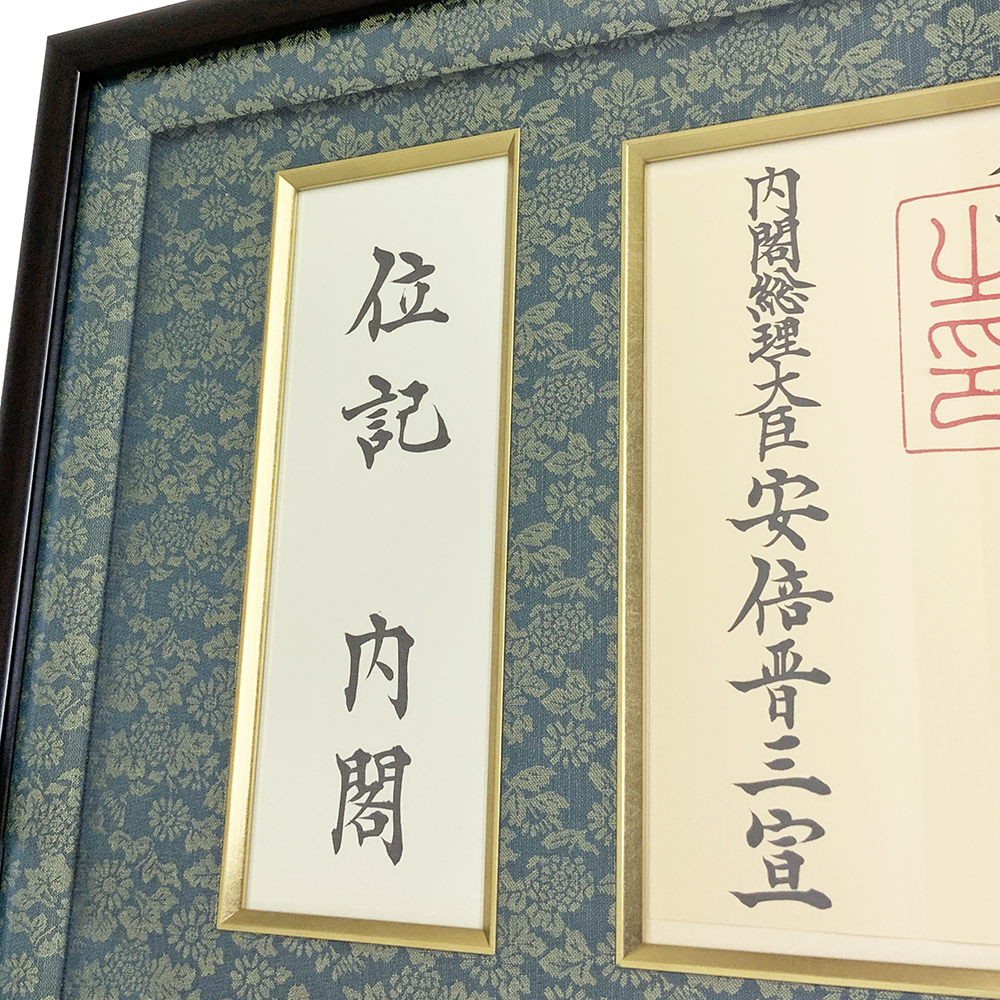 内閣総理大臣安倍晋三宣
位記　内閣